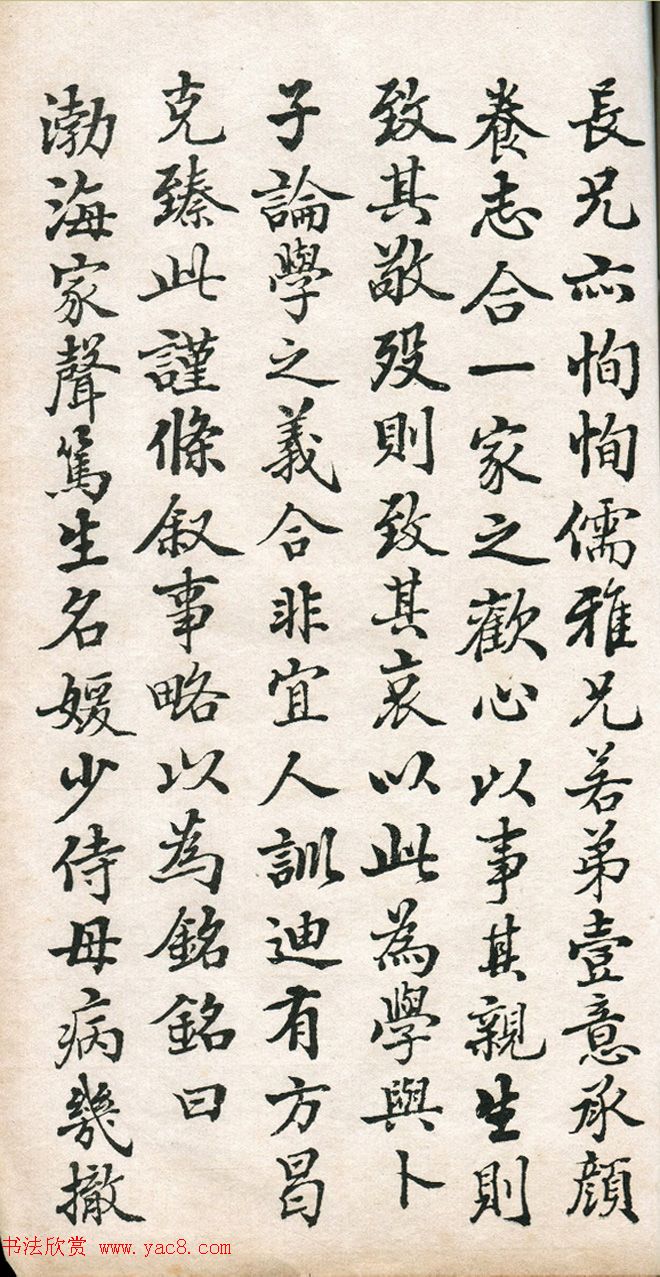 長兄亦恂恂儒雅兄若弟壹意承顏
養志合一家之歡心以事其親生則
致其敬歿則致其哀以此為學與卜
子論學之義合非宜人訓迪有方曷
克臻此謹條叙事略以為銘銘曰
渤海家聲篤生名媛少侍母病幾撤
书法欣赏 www.yac8.com